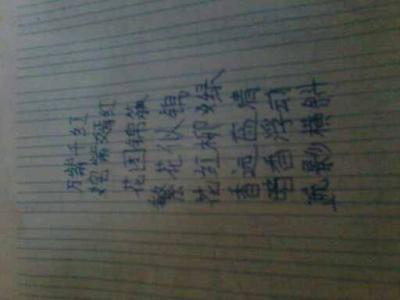 万紫千红
姹紫嫣红
花团锦簇
繁花似锦
花红柳绿
香远益清
暗香浮动
疏影横斜